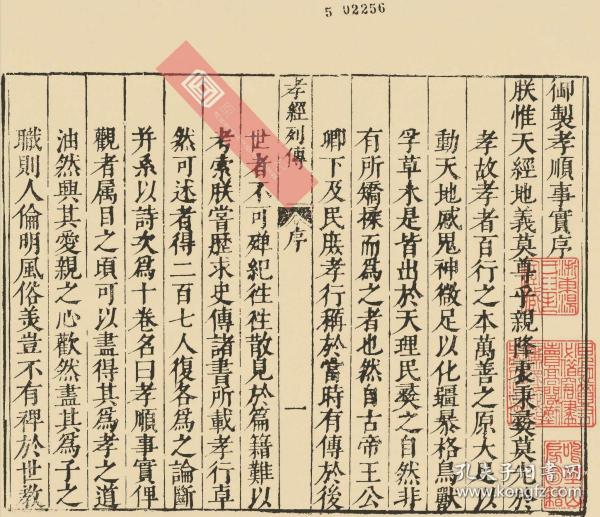 5 02256
御製孝順事實序
朕惟天經地義莫尊乎親降衷秉彝莫先於
孝故孝者百行之本萬善之原大足以
動天地感鬼神微足以化疆暴格鳥獸
孚草木是皆出於天理民彝之自然非
有所矯揉而為之者也然自古帝王公
卿下及民庶孝行稱於當時有傳於後
孝經列傳
序
一
世者不可殫紀徃徃散見於篇籍難以
考索朕嘗歷求史傳諸書所載孝行卓
然可述者得二百七人復各為之論斷
并系以詩次為十卷名曰孝順事實俾
觀者屬目之頃可以盡得其為孝之道
油然興其愛親之心歡然盡其為子之
職則人倫明風俗美豈不有裨於世教
孔夫子旧书网
www.kongfz.com